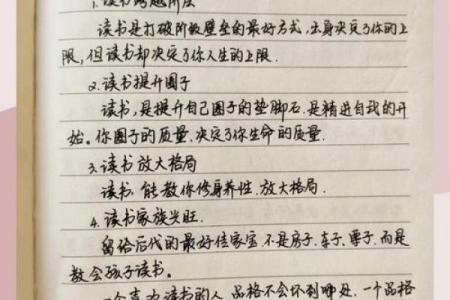 1.读书跨越阶层
读书是打破阶级壁垒的最好方式,出身决定了你的上
限,但读书却决定了你人生的上限.
2.读书提升圈子
读书,是提升自己圈子的垫脚石.是精进自我的开
始。你圈子的质量.决定了你生命的质量.
3.读书放大格局
读书.能教你修身养性.放大格局.
4.读书家族兴旺.
留给后代的最好传家宝.不是房子.车子、票子.而是
教会孩子读书。
一个喜欢读书的人.品格不会坏到哪处.一个品格